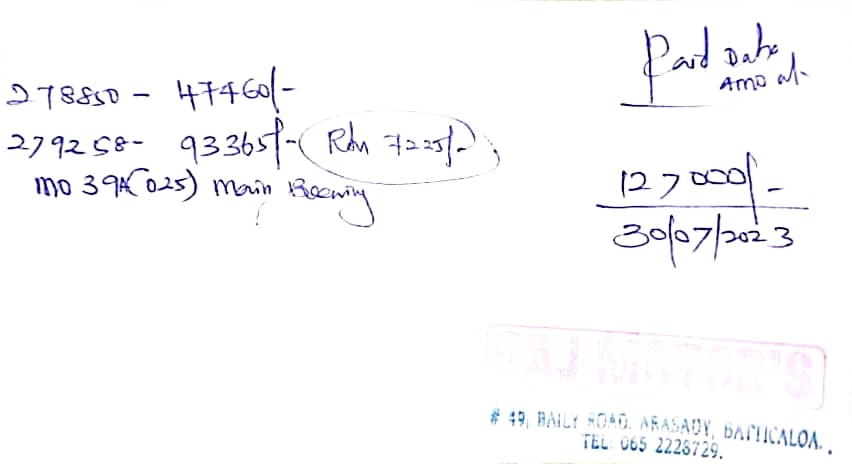 278850 - 47460/-
279258 - 93365/- (Rtn 7225/-)
MO 39A (025) Main Bearing
Paid Date
Amount
127000/-
30/07/2023
RAJ MOTOR'S
# 49, BAILY ROAD, ARASADY, BATTICALOA.
TEL: 065 2228729.